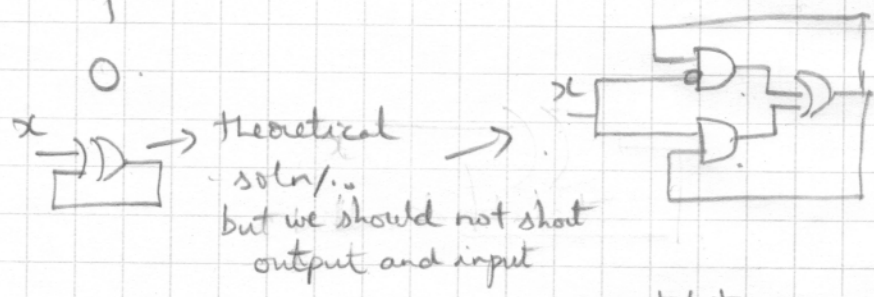 x
theoretical
soln/..
but we should not short
output and input
x